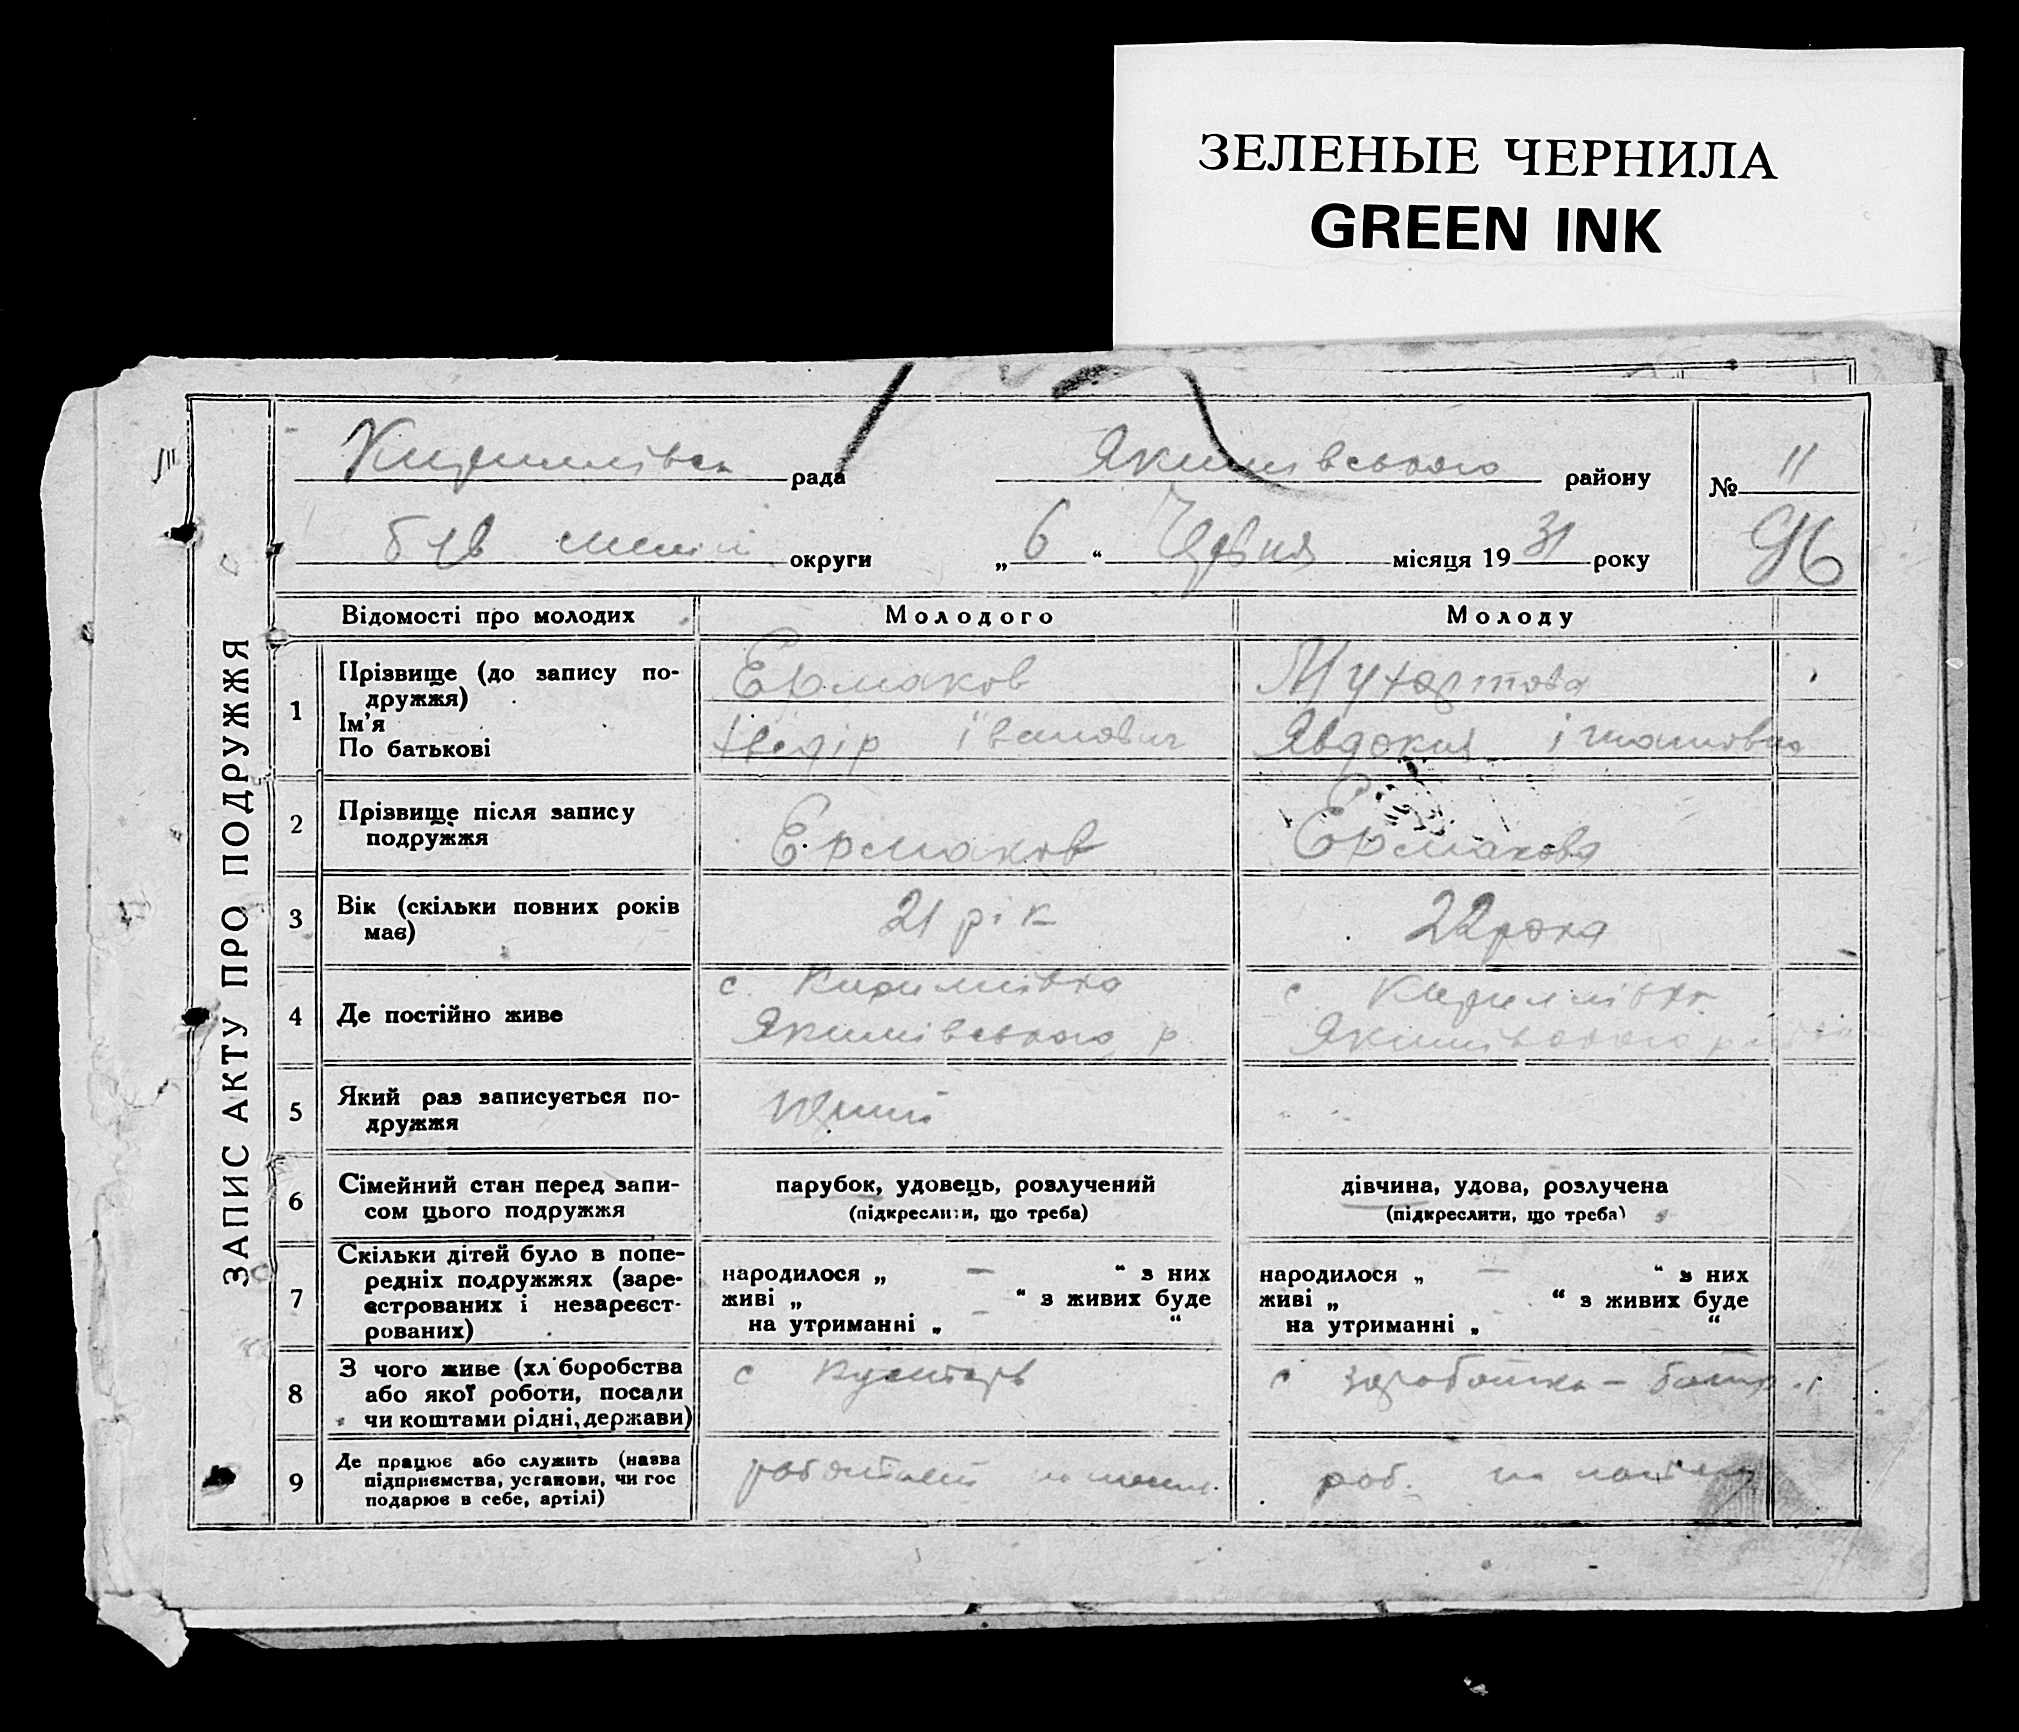 ЗЕЛЕНЫЕ ЧЕРНИЛА
GREEN INK
рада Якимівського району № 11
округи „6“ Червня місяця 1931 року 96
ЗАПИС АКТУ ПРО ПОДРУЖЖЯ
Відомості про молодих Молодого Молоду
1 Прізвище (до запису по-
дружжя)
Ім’я
По батькові
Ермаков
Івanович
Явдокия
2 Прізвище після запису
подружжя
Ермаков
Ермакова
3 Вік (скільки повних років
має)
21 рік
22 роки
4 Де постійно живе
с. Кирилівка
Якимівського р
с Кирилівка
Якимівського
5 Який раз записується по-
дружжя
6 Сімейний стан перед запи-
сом цього подружжя
парубок, удовець, розлучений
(підкреслити, що треба)
дівчина, удова, розлучена
(підкреслити, що треба)
7 Скільки дітей було в попе-
редніх подружжях (заре-
єстрованих і незареєст-
рованих)
народилося „ — “ з них
живі „ “ з живих буде
на утриманні „ — “
народилося „ — “ з них
живі „ “ з живих буде
на утриманні „ “
8 З чого живе (хліборобства
або якої роботи, посади
чи коштами рідні, держави)
с
с заработка –
9 Де працює або служить (назва
підприємства, установи, чи гос
подарює в себе, артілі)
роб. на